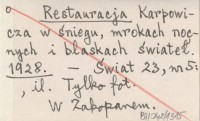 Restauracja Karpowi-
cza w śniegu, mrokach noc-
nych i blaskach świateł.
1928. – Świat 23, nr 5:
, il. Tylko fot.
W Zakopanem.